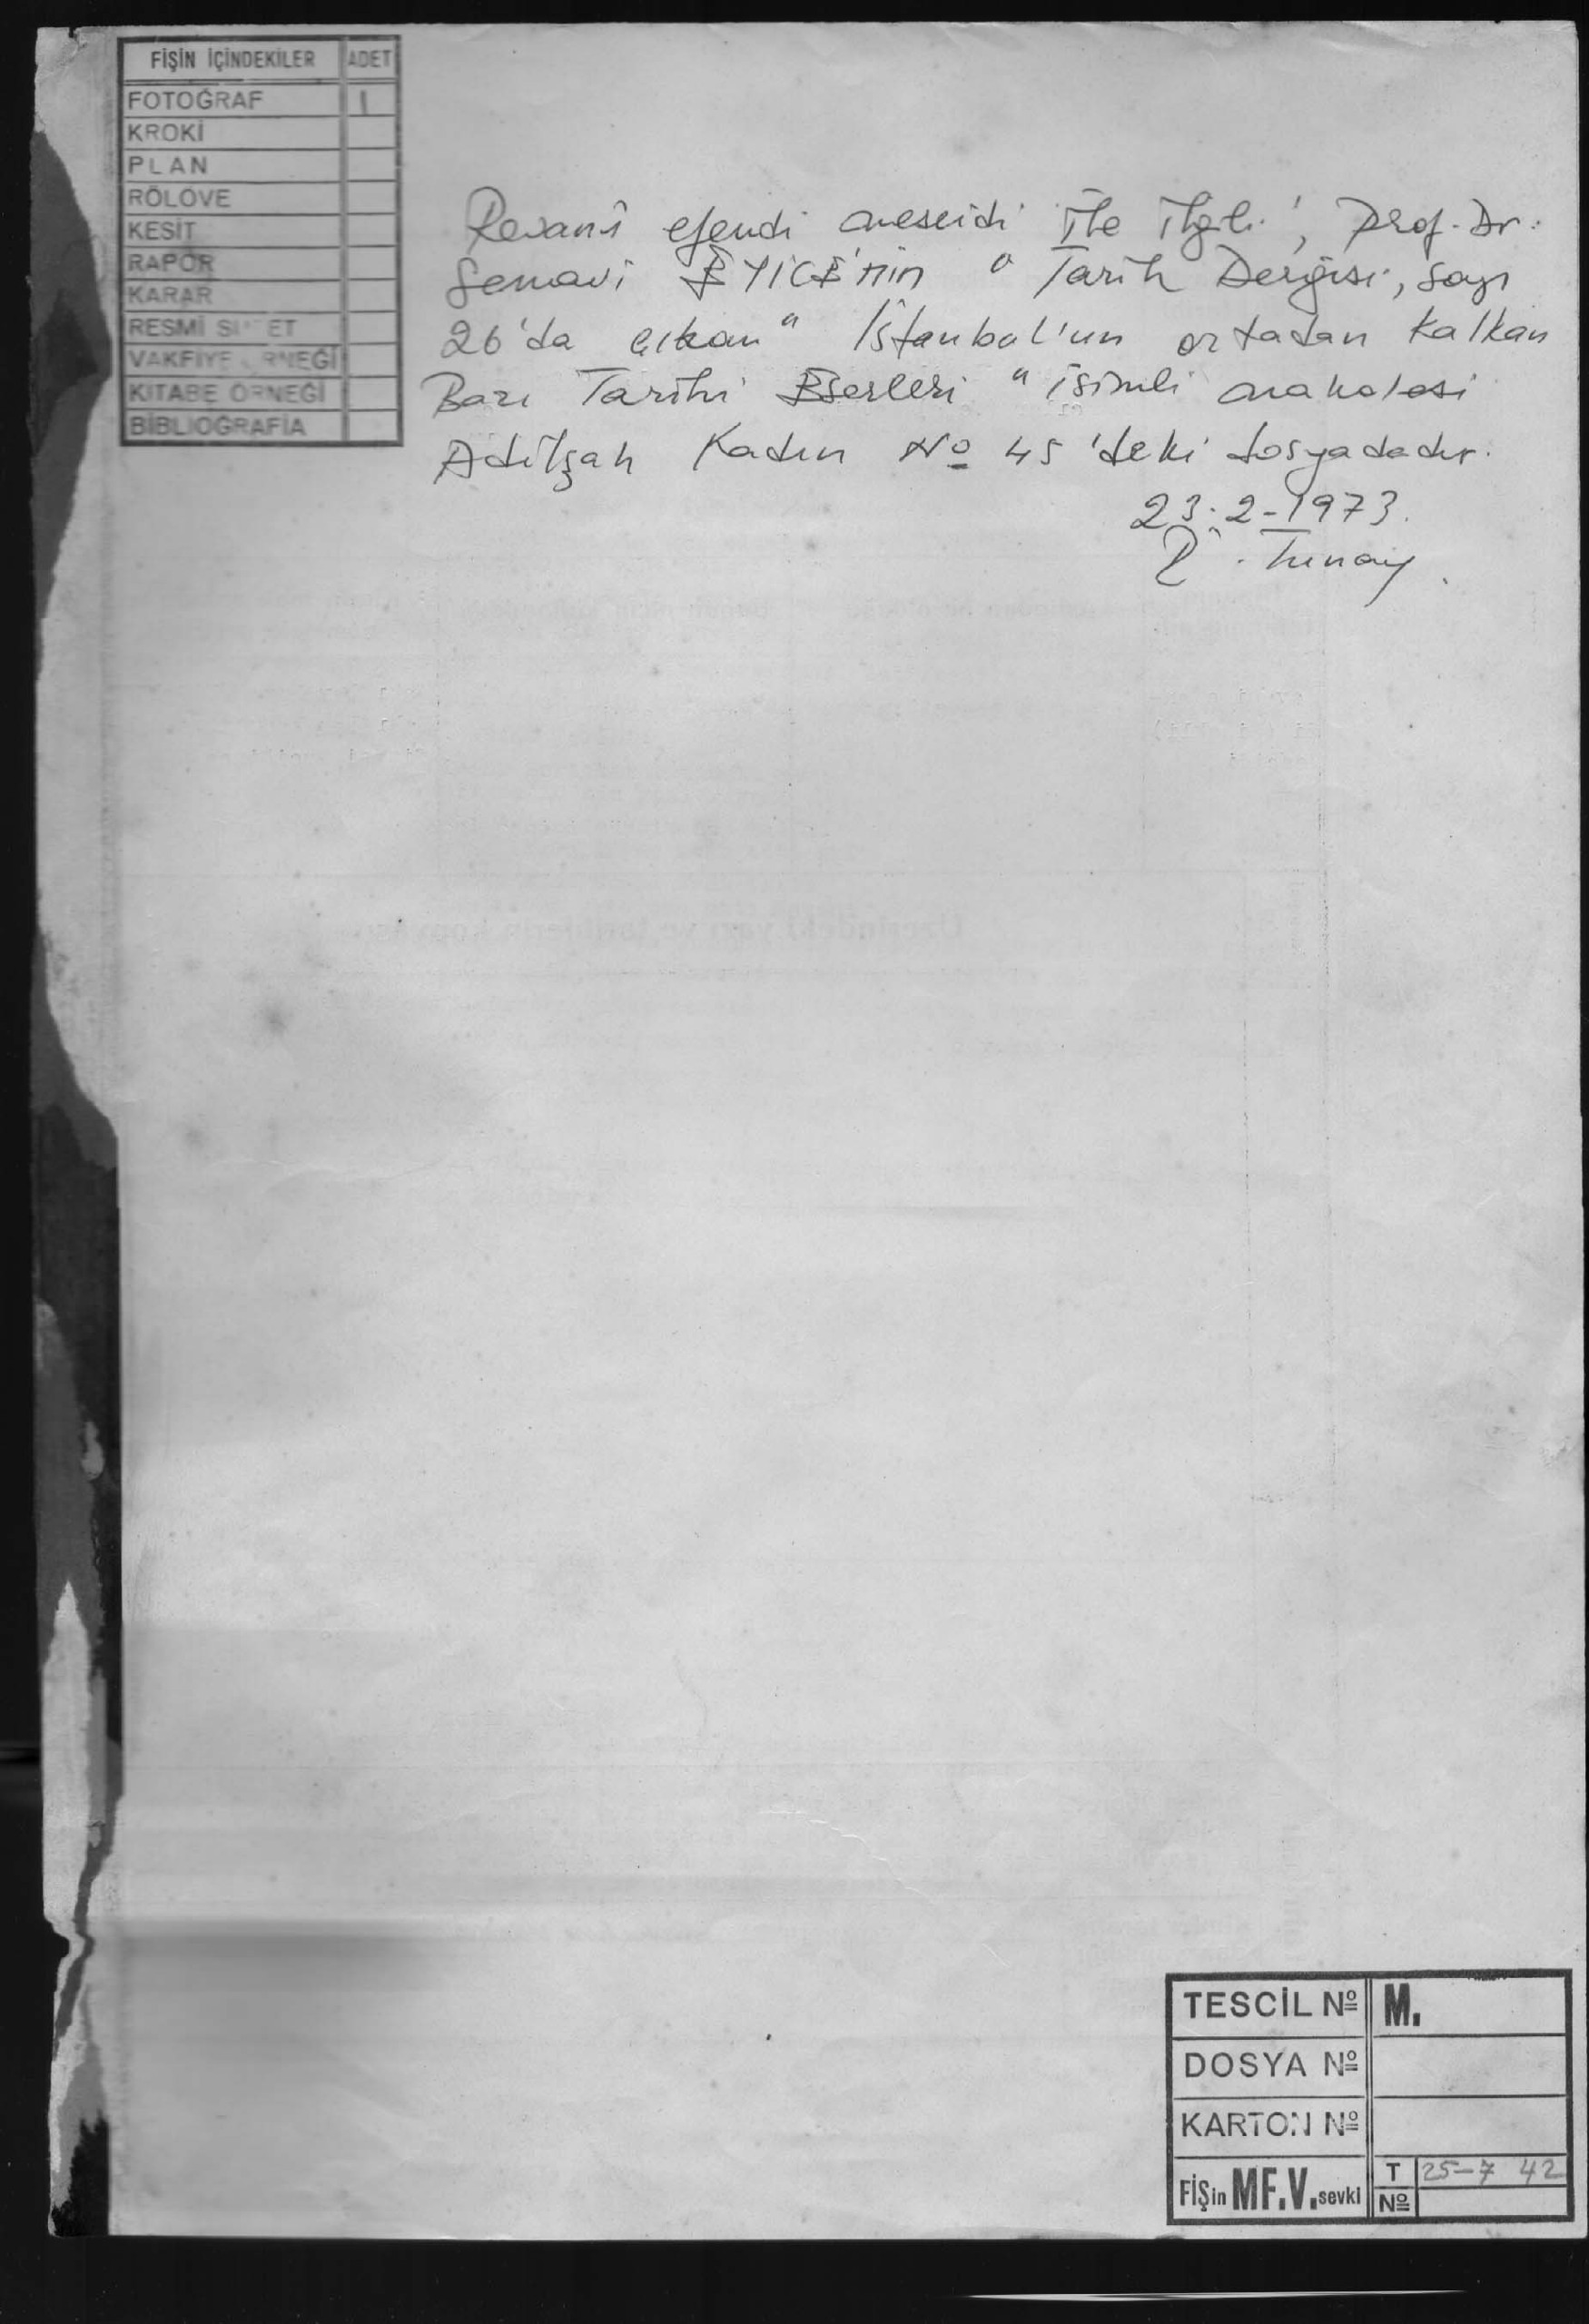 FİŞİN İÇİNDEKİLER ADET
FOTOĞRAF 1
KROKİ
PLAN
RÖLÖVE
KESİT
RAPOR
KARAR
RESMİ Sİ ET
VAKFİYE RNEĞİ
KİTABE ÖRNEĞİ
BİBLİOĞRAFİA
Revani efendi mescidi ile ilgili, Prof. Dr.
Semavi EYİCE'nin " Tarih Dergisi, sayı
26'da çıkan " İstanbul'un ortadan Kalkan
Bazı Tarihi Eserleri " isimli makalesi
Adilşah Kadın No 45'deki dosyadadır.
23.2-1973.
Tunay
TESCİL No M.
DOSYA No
KARTON No
FİŞin MF.V.sevki T 25-7 42
No